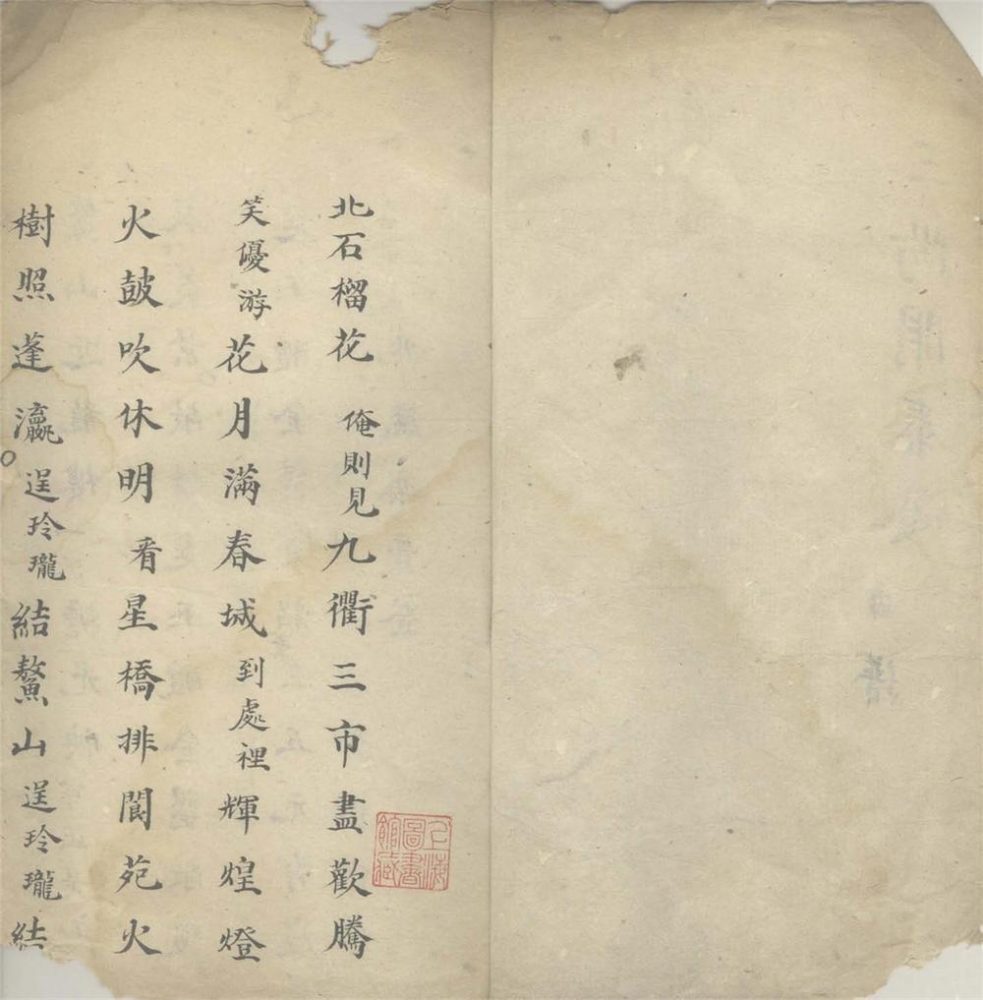 北石榴花 俺則見九衢三市盡歡騰
笑優游花月滿春城到處裡輝煌燈
火鼓吹休明看星橋排閬苑火
樹照蓬瀛逞玲瓏結鰲山逞玲瓏結
上海圖書館藏